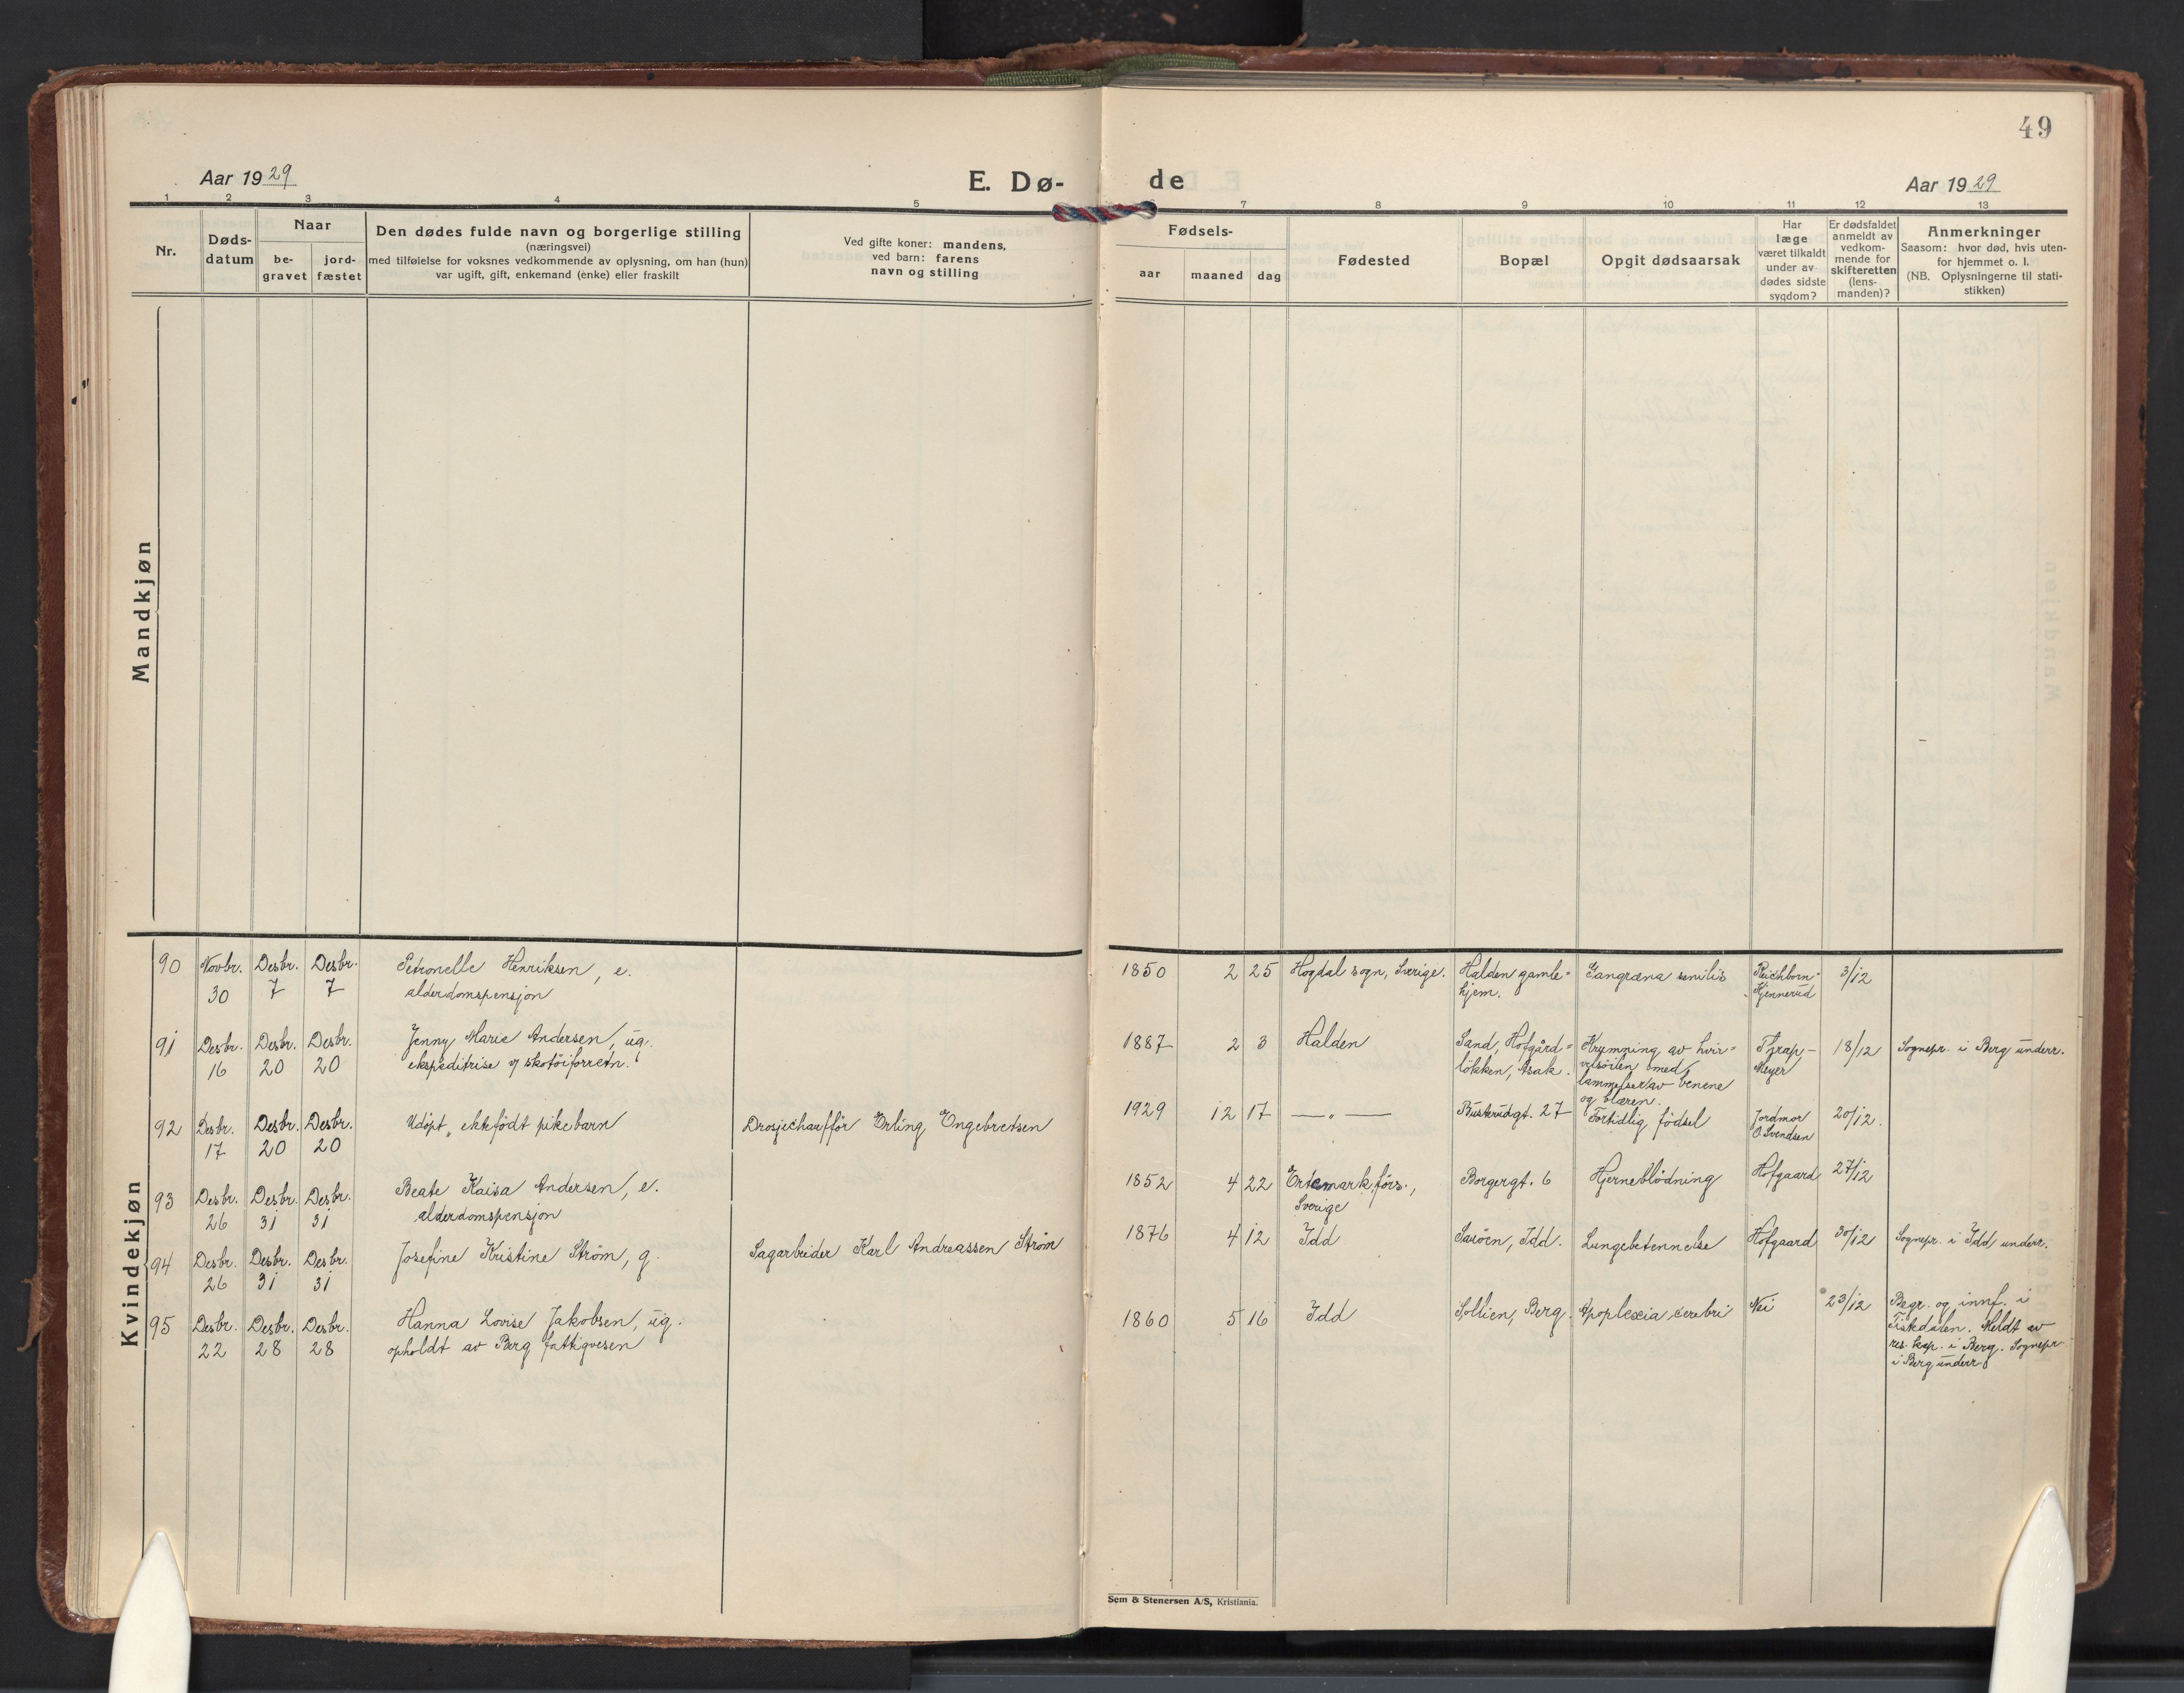 49
Aar 1929
E. Dø-
de
Aar 1929
1 2 3 4 5 6 7 8 9 10 11 12 13
Nr.
Døds-
datum
Naar
be-
gravet
jord-
fæstet
Den dødes fulde navn og borgerlige stilling
(næringsvei)
med tilføielse for voksnes vedkommende av oplysning, om han (hun)
var ugift, gift, enkemand (enke) eller fraskilt
Ved gifte koner: mandens,
ved barn: farens
navn og stilling
Fødsels-
aar
maaned
dag
Fødested
Bopæl
Opgit dødsaarsak
Har
læge
været tilkaldt
under av-
dødes sidste
sygdom?
Er dødsfaldet
anmeldt av
vedkom-
mende for
skifteretten
(lens-
manden)?
Anmerkninger
Saasom: hvor død, hvis uten-
for hjemmet o. l.
(NB. Oplysningerne til stati-
stikken)
Mandkjøn
Kvindekjøn
90 Novbr. Desbr. Desbr. Petronelle Henriksen, e. 1850 2 25 Hogdal sogn, Sverige. Halden gamle= Gangræna senilis Reichborn= 3/12
30 7 7 alderdomspensjon hjem. Kjennerud
91 Desbr. Desbr. Desbr. Jenny Marie Andersen, ug. 1887 2 3 Halden Sand, Hofgård= Krymning av hvir= Tjrap,- 18/12 Sognepr. i Berg underr.
16 20 20 ekspeditrise v/ skotöiforretn. lökken, Asak. velsöilen med Meyer
lammelser av benene
og blæren.
92 Desbr. Desbr. Desbr. Udöpt, ekkfödt pikebarn Drosjechaufför Erling Engebretsen 1929 12 17 — " — Buskrudgt. 27 Fortidlig födsel Jordmor 20/12.
17 20 20 O. Svendsen
93 Desbr. Desbr. Desbr. Beate Kaisa Andersen, e. 1852 4 22 Ertemark förs., Borgergt. 6 Hjerneblödning Hofgaard 27/12
26 31 31 alderdomspensjon Sverige
94 Desbr. Desbr. Desbr. Josefine Kristine Ström, g. Sagarbeider Karl Andreassen Ström 1876 4 12 Idd Sauöen, Idd. Lungebetennelse Hofgaard 30/12 Sognepr. i Idd underr.
26 31 31
95 Desbr. Desbr. Desbr. Hanna Lovise Jakobsen, ug. 1860 5 16 Idd Sollien, Berg. Apoplexia cerebri Nei 23/12 Begr. og innf. i
22 28 28 opholdt av Berg fattigvesen Tistedalen. Meldt av
res. kap. i Berg. Sognepr.
i Berg underr.
Sem & Stenersen A/S, Kristiania.